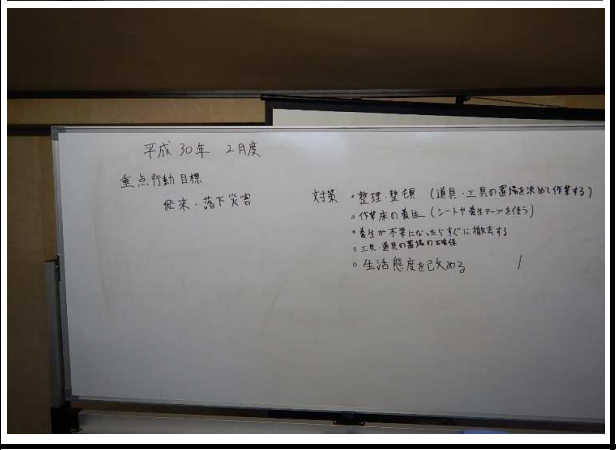 平成 30年 2月度
重点行動目標
飛来・落下災害
対策 ○整理・整頓 (道具・工具の置場を決めて作業する)
○作業床の養生 (シートや養生テープを使う)
○養生が不要になったらすぐに撤去する
○工具・道具の置場の
○生活態度を改める